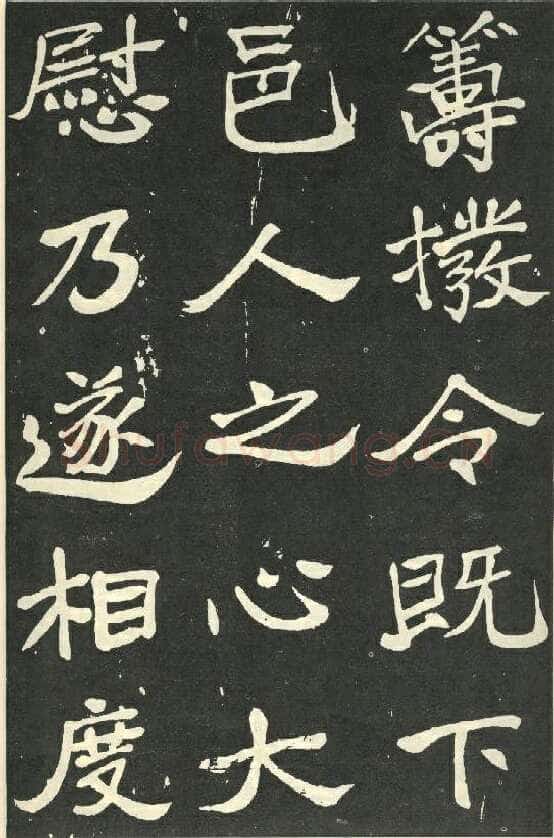 籌撥令既下
邑人之心大
慰乃遂相度